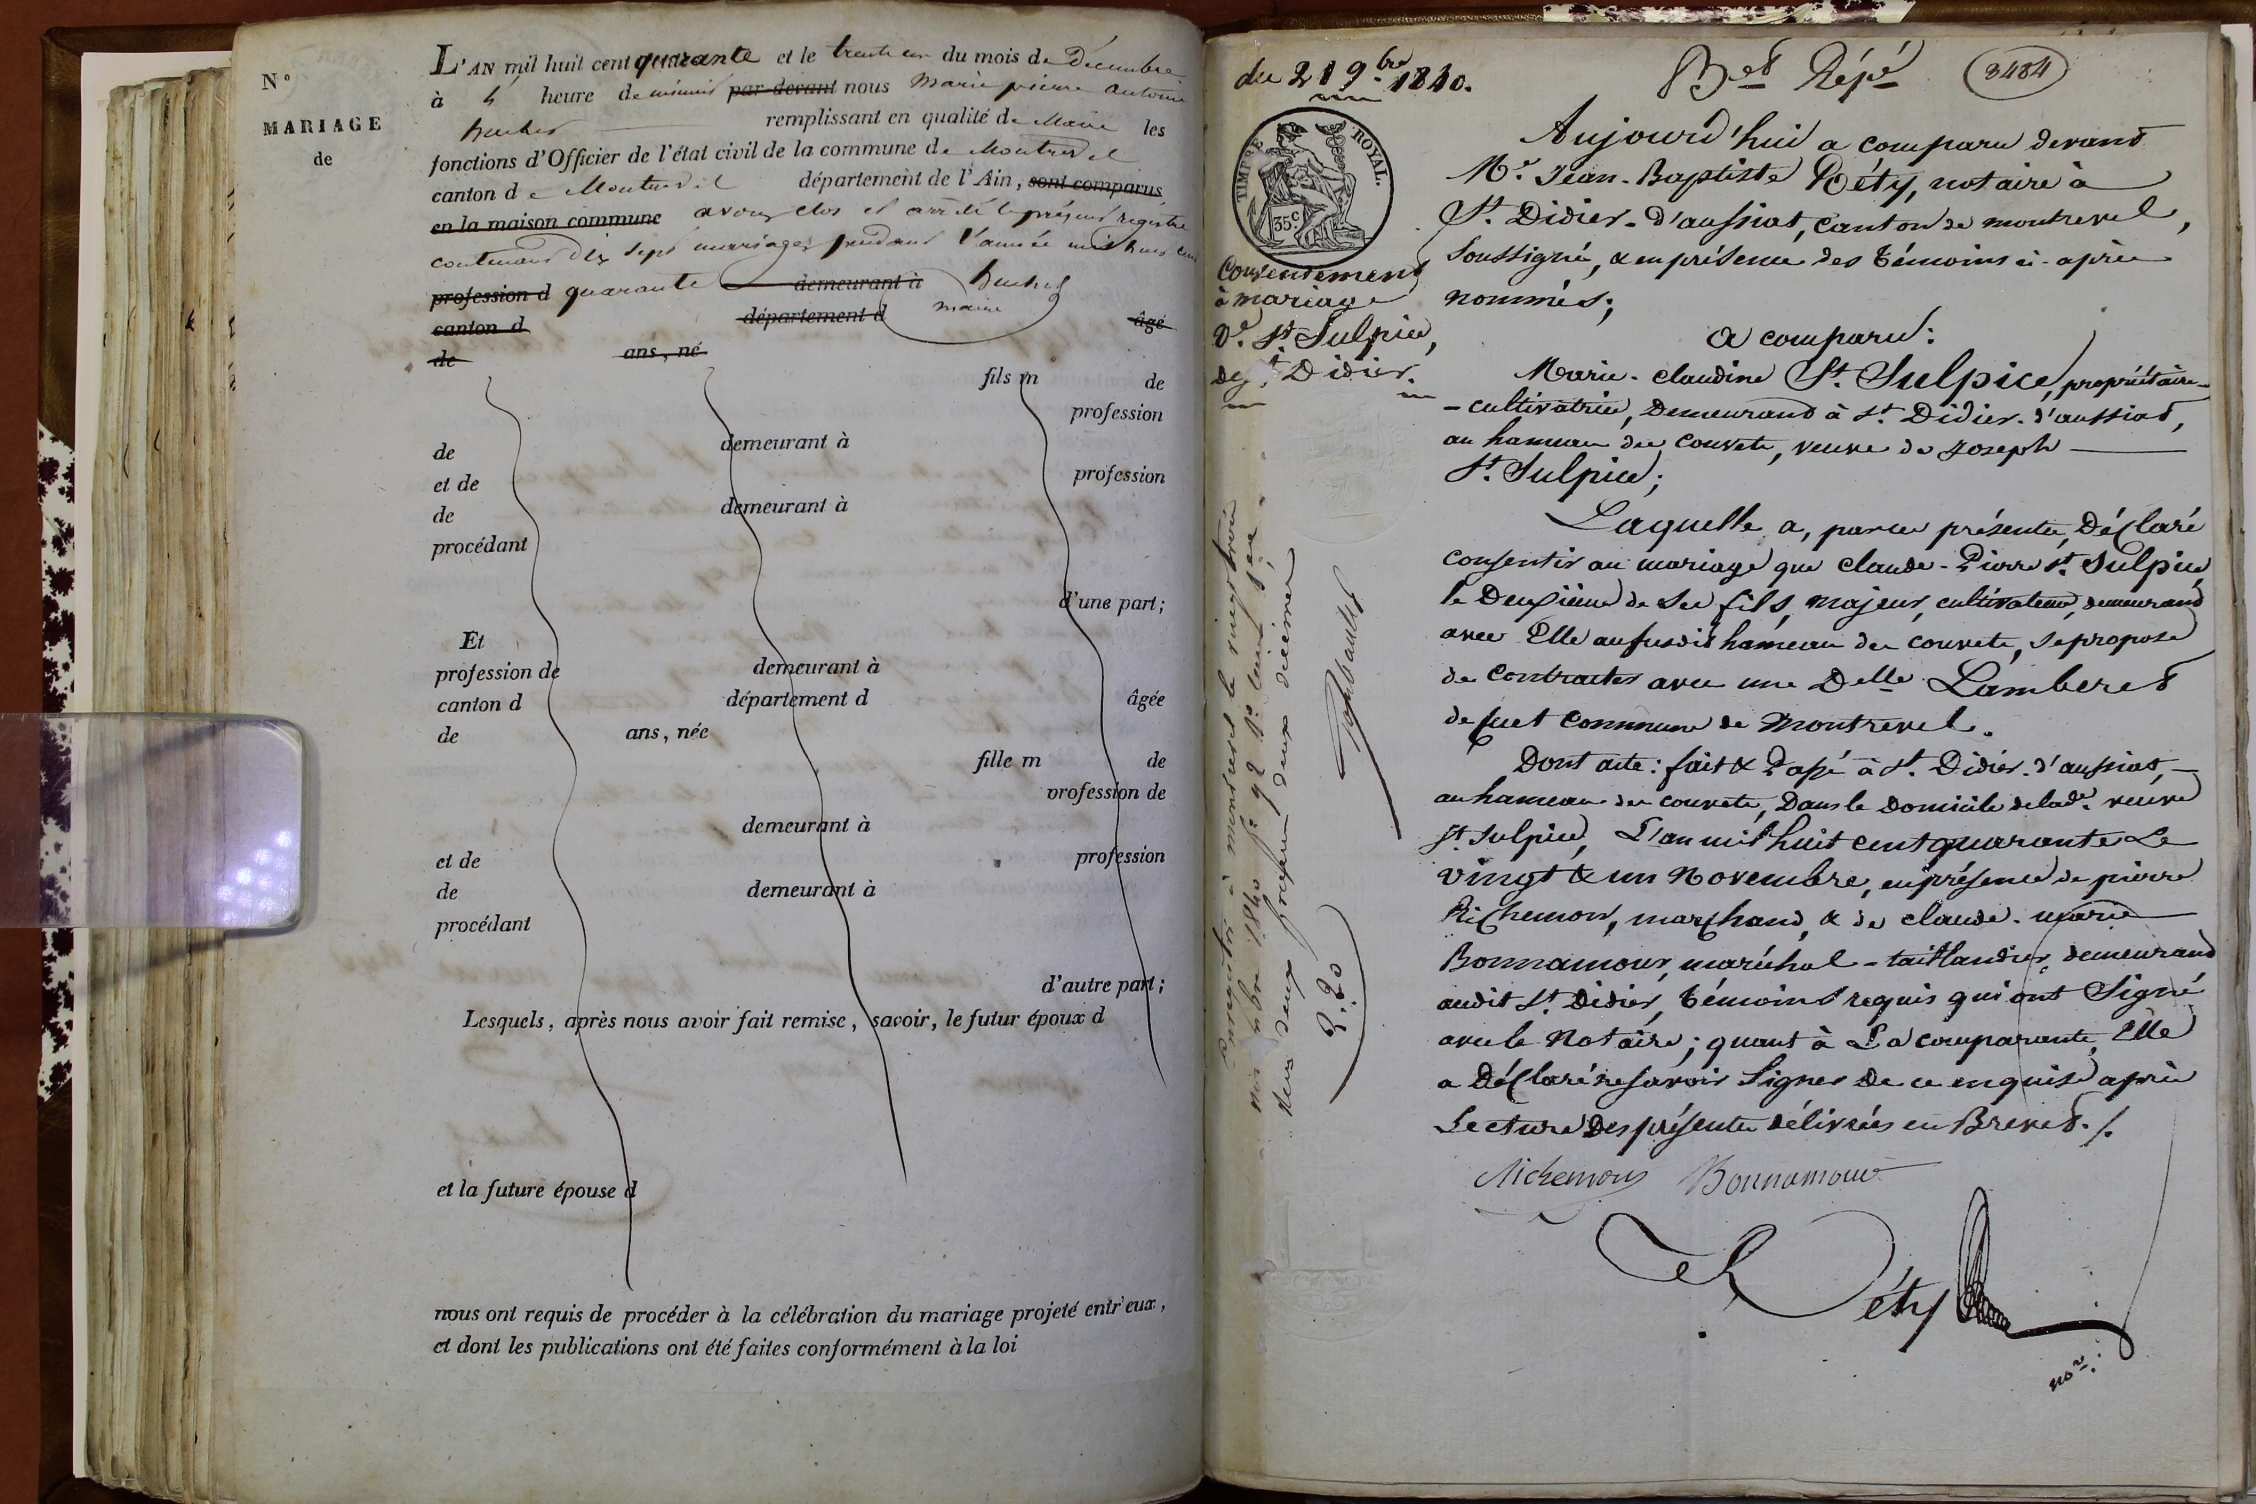 N°
MARIAGE
de
L'AN mil huit cent quarante et le trente un du mois de Décembre
à 4 heure de minuit par-devant nous Marie pierre antoine
remplissant en qualité de Maire les
fonctions d'Officier de l'état civil de la commune de Montrevel
canton de Montrevel département de l'Ain, sont comparus
en la maison commune avons clos et arrêté le présent registre
contenant dix sept mariages pendant l'année mil huit cent
profession d quarante demeurant à
canton d département d maire âgé
de ans, né
fils m de
profession
de demeurant à
et de profession
de demeurant à
procédant
d'une part;
Et
profession de demeurant à
canton d département d âgée
de ans, née
fille m de
profession de
demeurant à
et de profession
de demeurant à
procédant
d'autre part;
Lesquels, après nous avoir fait remise, savoir, le futur époux d
et la future épouse d
nous ont requis de procéder à la célébration du mariage projeté entr'eux,
et dont les publications ont été faites conformément à la loi
du 21 9.bre 1840.
Bet Répé 3484
TIMBRE ROYAL.
35c
Consentement
à mariage
Ve. St Sulpice,
de St Didier.
Aujourd'hui a comparu devant
Me. Jean-Baptiste Réty, notaire à
St. Didier-d'aussiat, canton de montrevel,
soussigné, & en présence des témoins ci-après
nommés;
a comparu:
Marie-claudine St. Sulpice, propriétaire-
-cultivatrice, demeurant à St. Didier-d'aussiat,
au hameau des couvets, veuve de Joseph
St. Sulpice;
Laquelle a, par ces présentes, déclaré
consentir au mariage que claude-Pierre St. Sulpice,
le deuxième de ses fils, majeur, cultivateur, demeurant
avec Elle au susdit hameau des couvets, se propose
de contracter avec une Delle Lamberet
de Cuet commune de Montrevel.
Dont acte: fait & Passé à St. Didier-d'aussiat,
au hameau des couvets, Dans le domicile de lade. veuve
St. Sulpice, L'an mil huit cent quarante Le
vingt & un Novembre, en présence de pierre
Richemon, marchand, & de claude-marie
Bonnamour, maréchal-taillandier, demeurant
audit St. Didier, témoins requis qui ont Signé
avec le Notaire; quant à La comparante, Elle
a Déclaré ne savoir Signer De ce enquise après
Lecture Des présentes délivrées en Brevet./.
Richemon Bonnamour
Réty
nore.
Enregistré à montrevel le vingt trois
novbre 1840 fo 92
reçu deux francs deux décimes
2.20